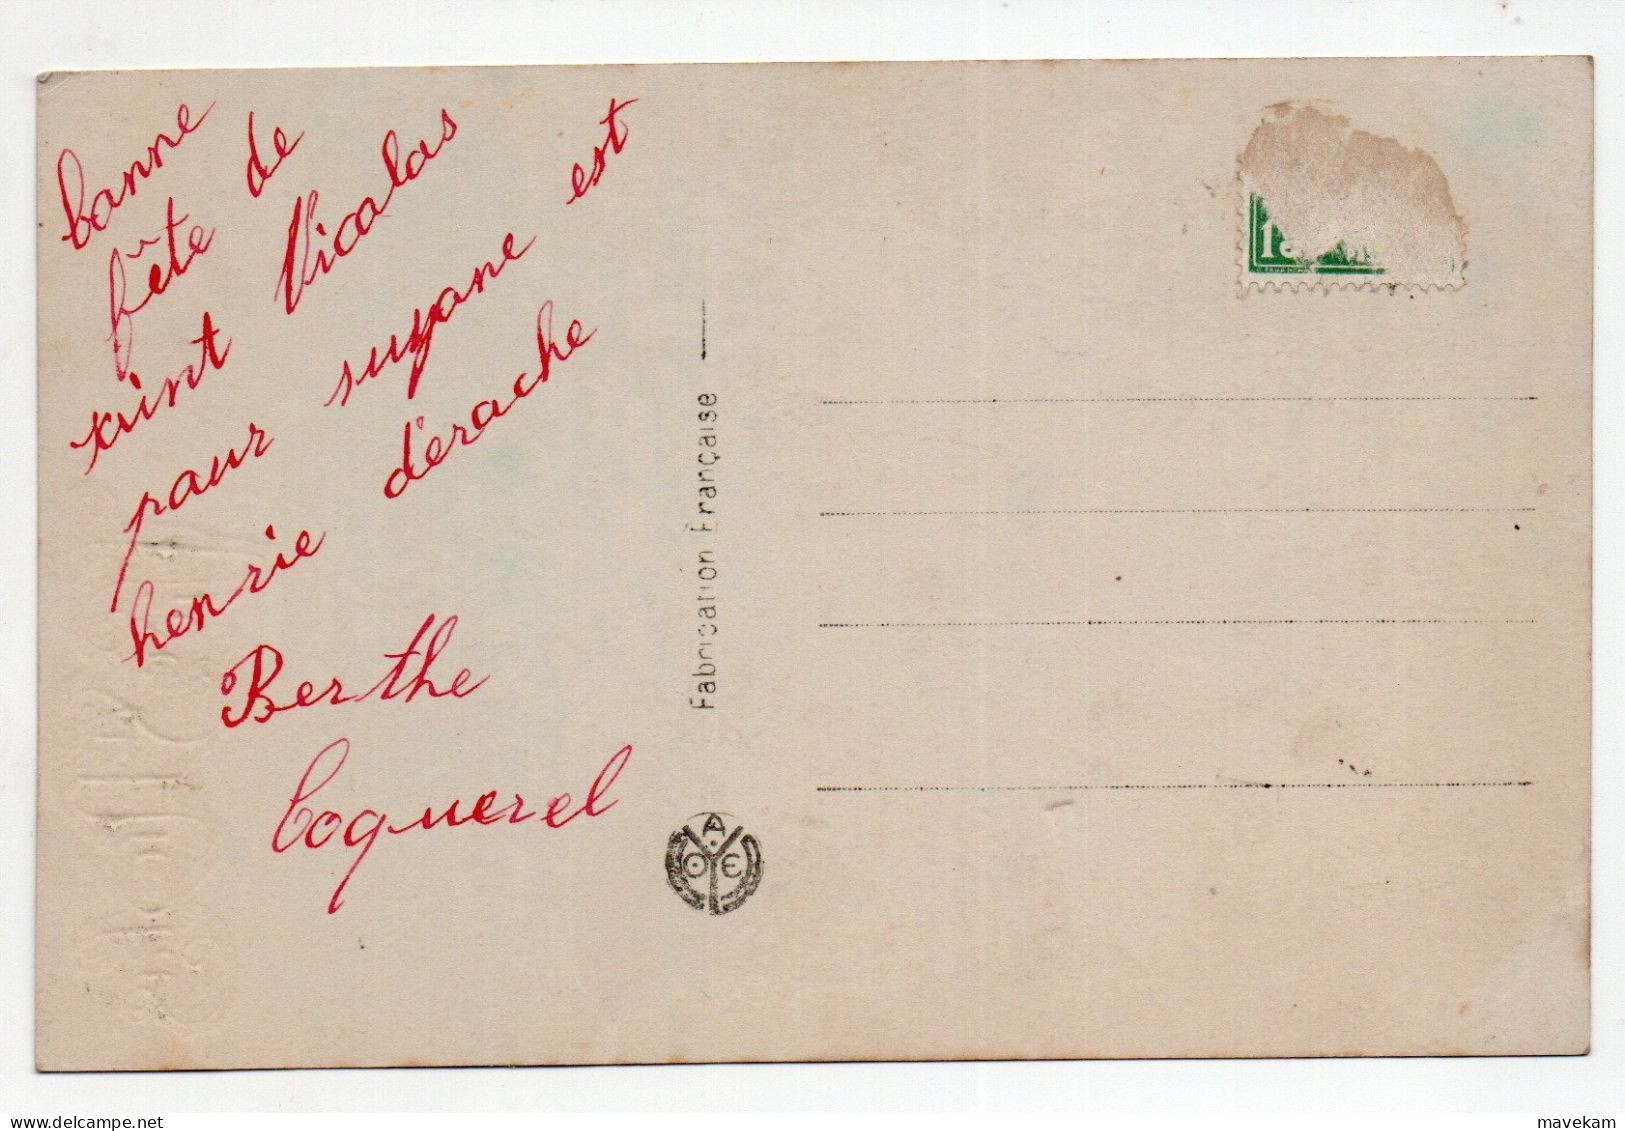 bonne
fête de
saint Nicolas
pour suzane est
henrie dérache
Berthe
Coquerel
Fabrication Française
A
O E
1F
mavekam